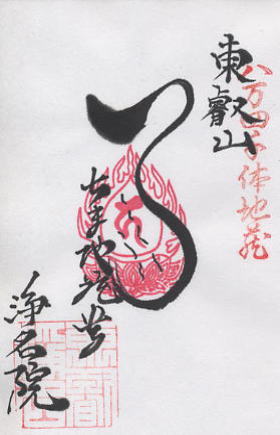 八万四千体地蔵
東叡山
地蔵尊
浄名院